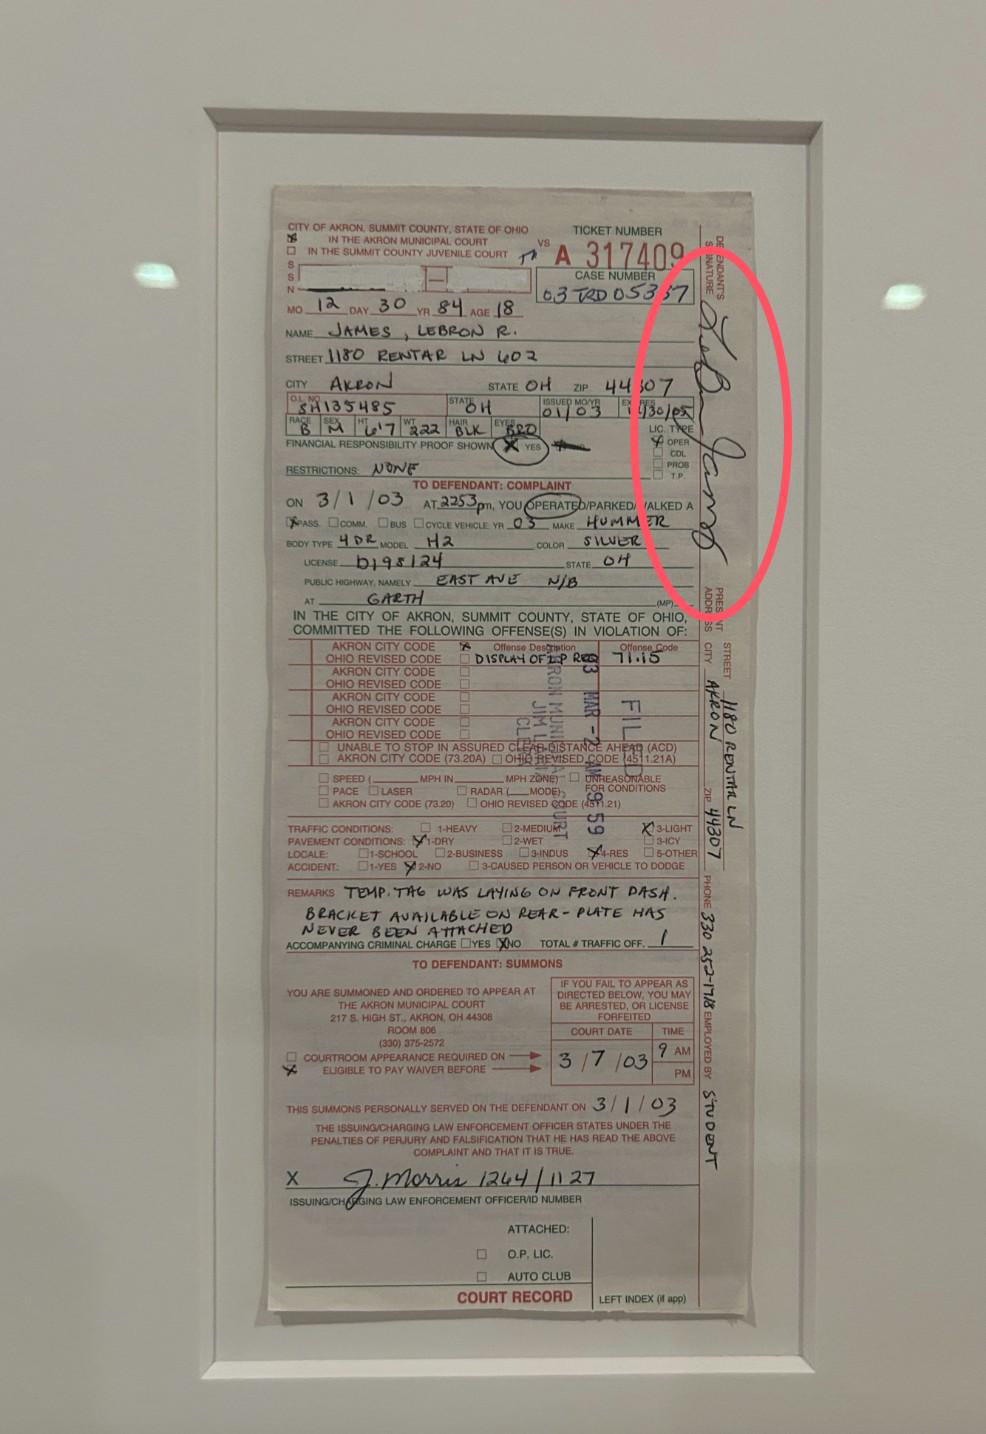 CITY OF AKRON, SUMMIT COUNTY, STATE OF OHIO
IN THE AKRON MUNICIPAL COURT
IN THE SUMMIT COUNTY JUVENILE COURT
VS
TICKET NUMBER
A 317409
CASE NUMBER
03 TRD 05337
S
S
N
MO. 12 DAY 30 YR 84 AGE 18
NAME JAMES, LEBRON R.
STREET 1180 RENTAR LN 602
CITY AKRON STATE OH ZIP 44307
O.L. NO. SH135485 STATE OH ISSUED MO/YR 01/03 EXPIRES 12/30/05
RACE B SEX M HT 6'7 WT 222 HAIR BLK EYES BRO
LIC. TYPE
FINANCIAL RESPONSIBILITY PROOF SHOWN X YES
X OPER
CDL
PROB
T.P.
RESTRICTIONS: NONE
TO DEFENDANT: COMPLAINT
ON 3/1/03 AT 2253 pm, YOU OPERATED/PARKED/WALKED A
PASS. COMM. BUS CYCLE VEHICLE YR 03 MAKE HUMMER
BODY TYPE 4 DR MODEL H2 COLOR SILVER
LICENSE D198124 STATE OH
PUBLIC HIGHWAY, NAMELY EAST AVE N/B
AT GARTH (MP)
IN THE CITY OF AKRON, SUMMIT COUNTY, STATE OF OHIO,
COMMITTED THE FOLLOWING OFFENSE(S) IN VIOLATION OF:
AKRON CITY CODE X Offense Description Offense Code
OHIO REVISED CODE DISPLAY OF LP REQ 71.15
AKRON CITY CODE
OHIO REVISED CODE
AKRON CITY CODE
OHIO REVISED CODE
AKRON CITY CODE
OHIO REVISED CODE
UNABLE TO STOP IN ASSURED CLEAR DISTANCE AHEAD (ACD)
AKRON CITY CODE (73.20A) OHIO REVISED CODE (4511.21A)
SPEED ( MPH IN MPH ZONE) UNREASONABLE
FOR CONDITIONS
PACE LASER RADAR ( MODE)
AKRON CITY CODE (73.20) OHIO REVISED CODE (4511.21)
FILED
03 MAR -2 AM 9:59
AKRON MUNICIPAL COURT
JIM
CLERK
TRAFFIC CONDITIONS: 1-HEAVY 2-MEDIUM X 3-LIGHT
PAVEMENT CONDITIONS: X 1-DRY 2-WET 3-ICY
LOCALE: 1-SCHOOL 2-BUSINESS 3-INDUS X 4-RES 5-OTHER
ACCIDENT: 1-YES X 2-NO 3-CAUSED PERSON OR VEHICLE TO DODGE
REMARKS TEMP. TAG WAS LAYING ON FRONT DASH.
BRACKET AVAILABLE ON REAR - PLATE HAS
NEVER BEEN ATTACHED
ACCOMPANYING CRIMINAL CHARGE YES X NO TOTAL # TRAFFIC OFF. 1
TO DEFENDANT: SUMMONS
YOU ARE SUMMONED AND ORDERED TO APPEAR AT
THE AKRON MUNICIPAL COURT
217 S. HIGH ST., AKRON, OH 44308
ROOM 806
(330) 375-2572
COURTROOM APPEARANCE REQUIRED ON
X ELIGIBLE TO PAY WAIVER BEFORE
IF YOU FAIL TO APPEAR AS
DIRECTED BELOW, YOU MAY
BE ARRESTED, OR LICENSE
FORFEITED
COURT DATE TIME
3/7/03 9 AM
PM
THIS SUMMONS PERSONALLY SERVED ON THE DEFENDANT ON 3/1/03
THE ISSUING/CHARGING LAW ENFORCEMENT OFFICER STATES UNDER THE
PENALTIES OF PERJURY AND FALSIFICATION THAT HE HAS READ THE ABOVE
COMPLAINT AND THAT IT IS TRUE.
X J. Morris 1264/1127
ISSUING/CHARGING LAW ENFORCEMENT OFFICER/ID NUMBER
ATTACHED:
O.P. LIC.
AUTO CLUB
COURT RECORD
LEFT INDEX (if app)
DEFENDANT'S
SIGNATURE LeBron James
PRESENT
ADDRESS
STREET 1180 RENTAR LN
CITY AKRON ZIP 44307 PHONE 330 252-1718 EMPLOYED BY STUDENT